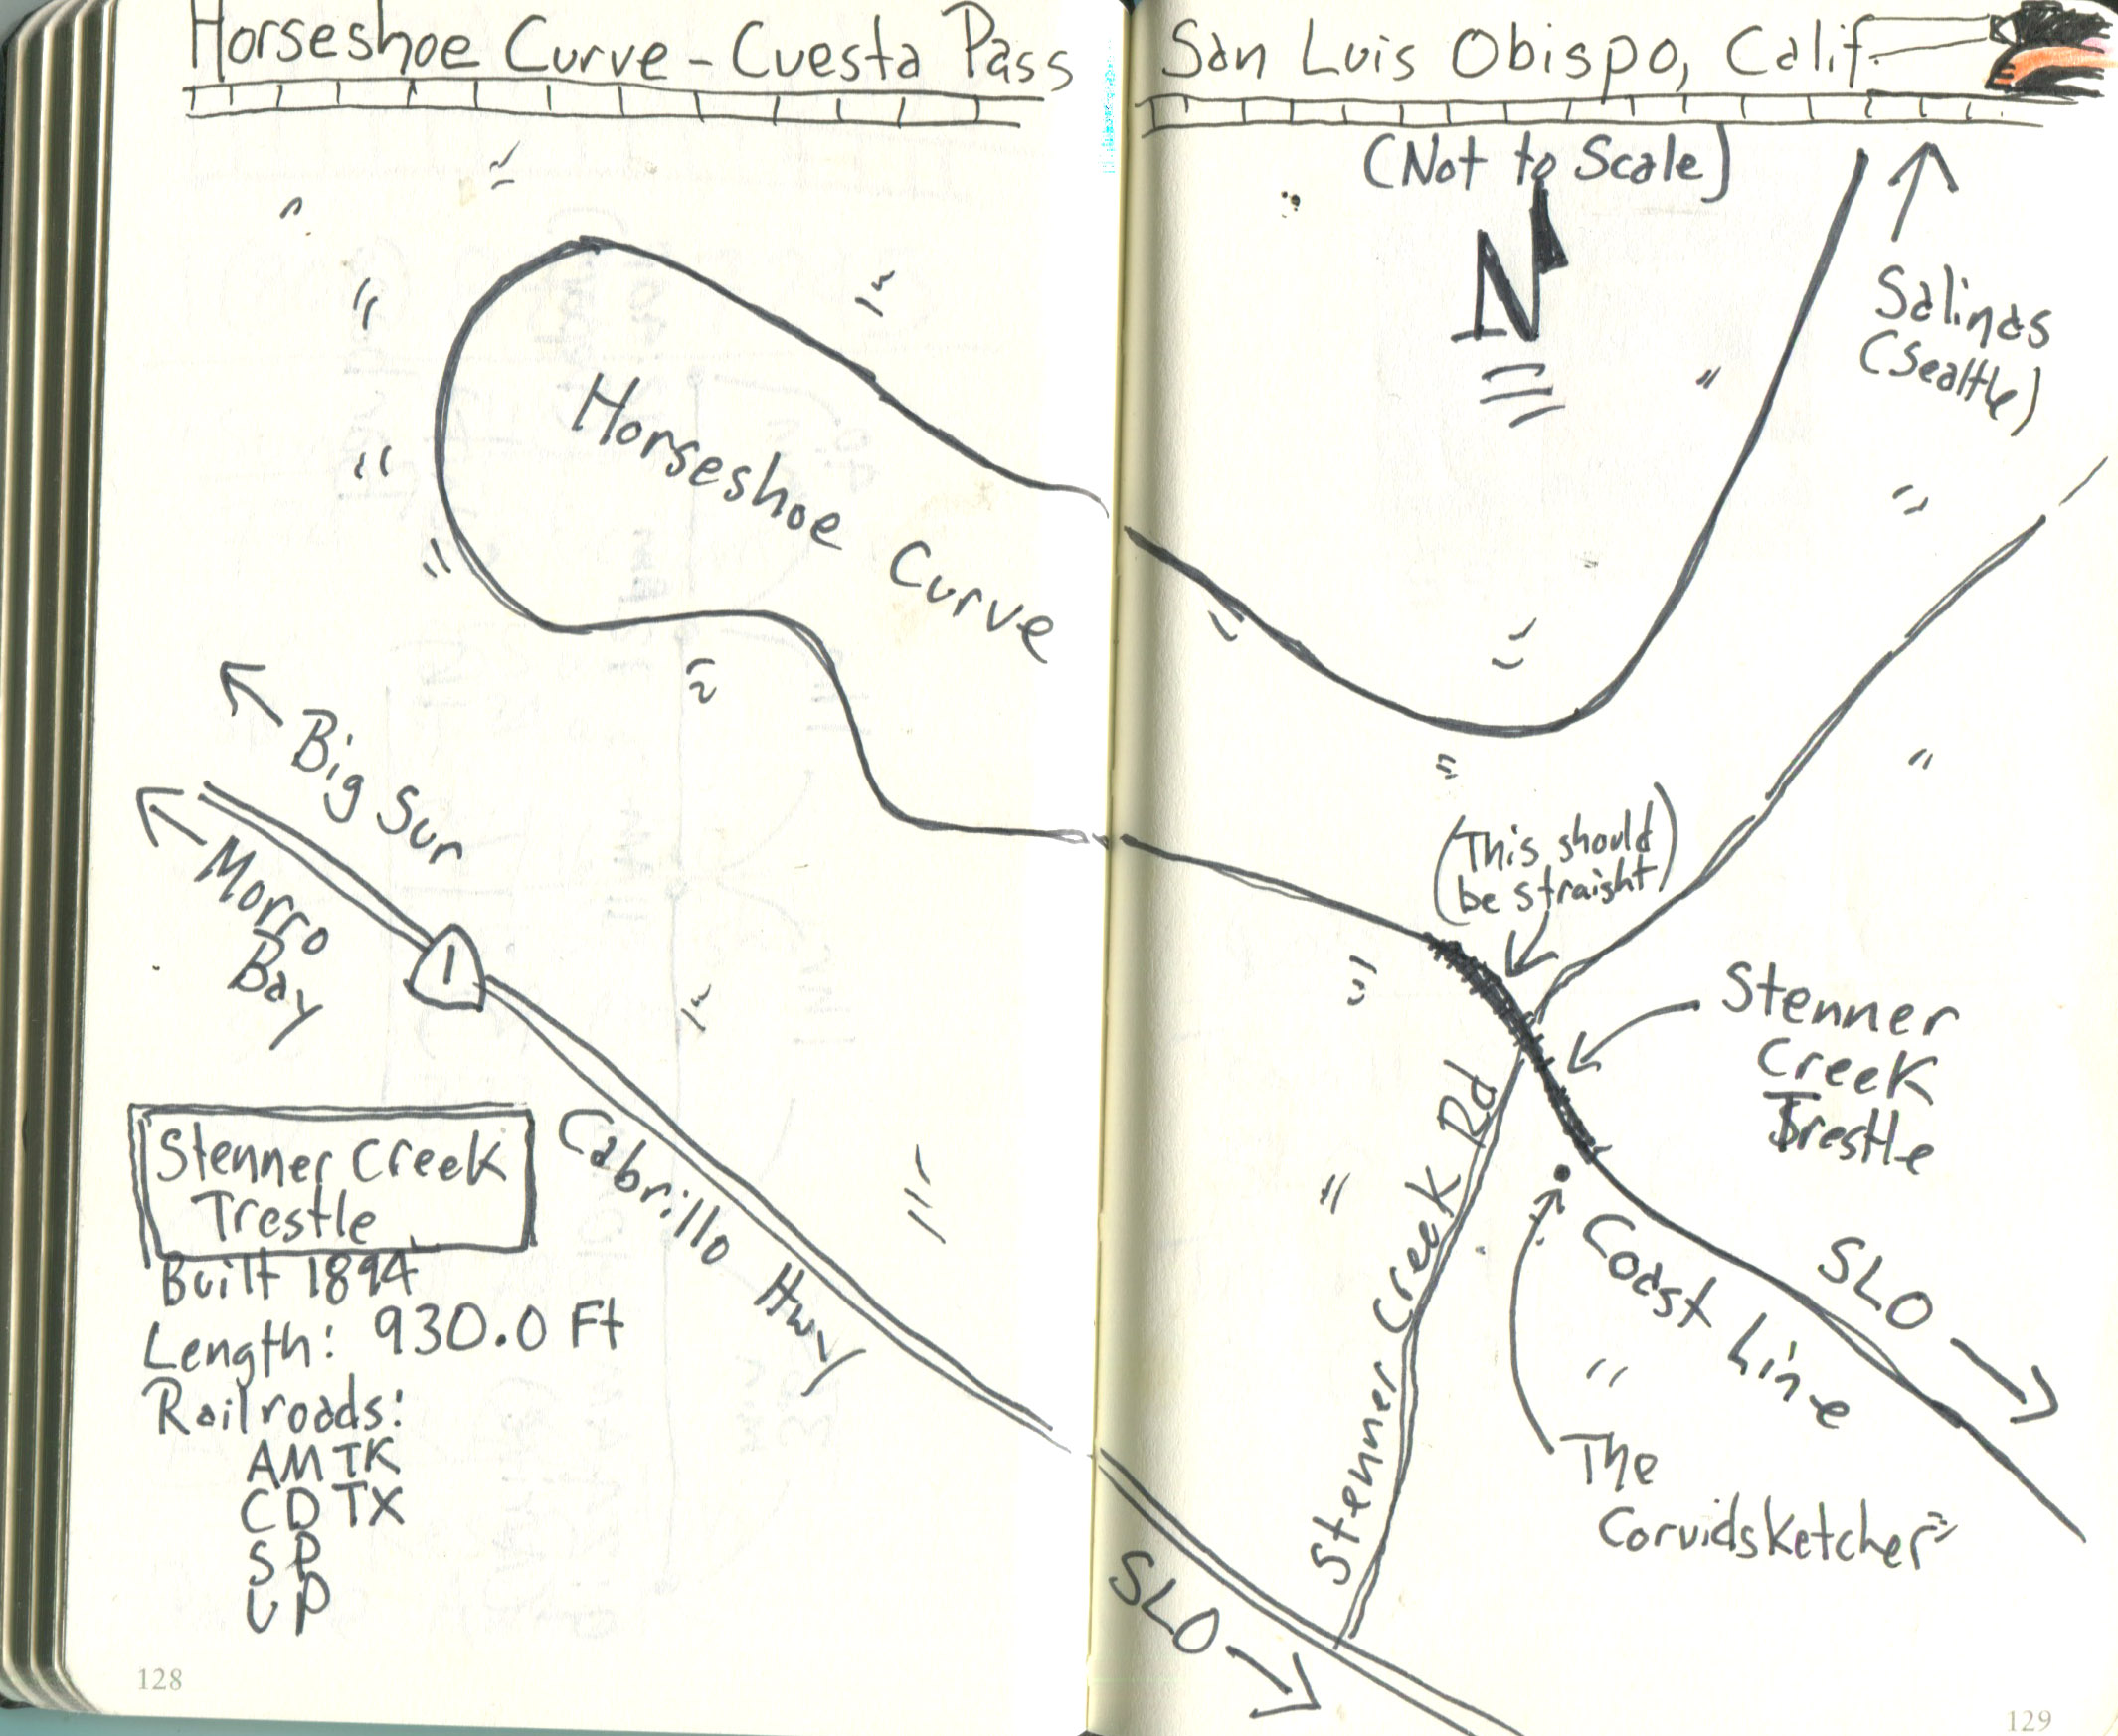 Horseshoe Curve - Cuesta Pass
San Luis Obispo, Calif.
(Not to Scale)
N
Salinas
(Seattle)
Horseshoe Curve
Big Sur
Morro
Bay
1
Cabrillo Hwy
Stenner Creek
Trestle
Built 1894
Length: 930.0 Ft
Railroads:
AMTK
CDTX
SP
UP
128
(This should
be straight)
Stenner
Creek
Trestle
Stenner Creek Rd
Coast Line
SLO
The
Corvidsketcher
SLO
129